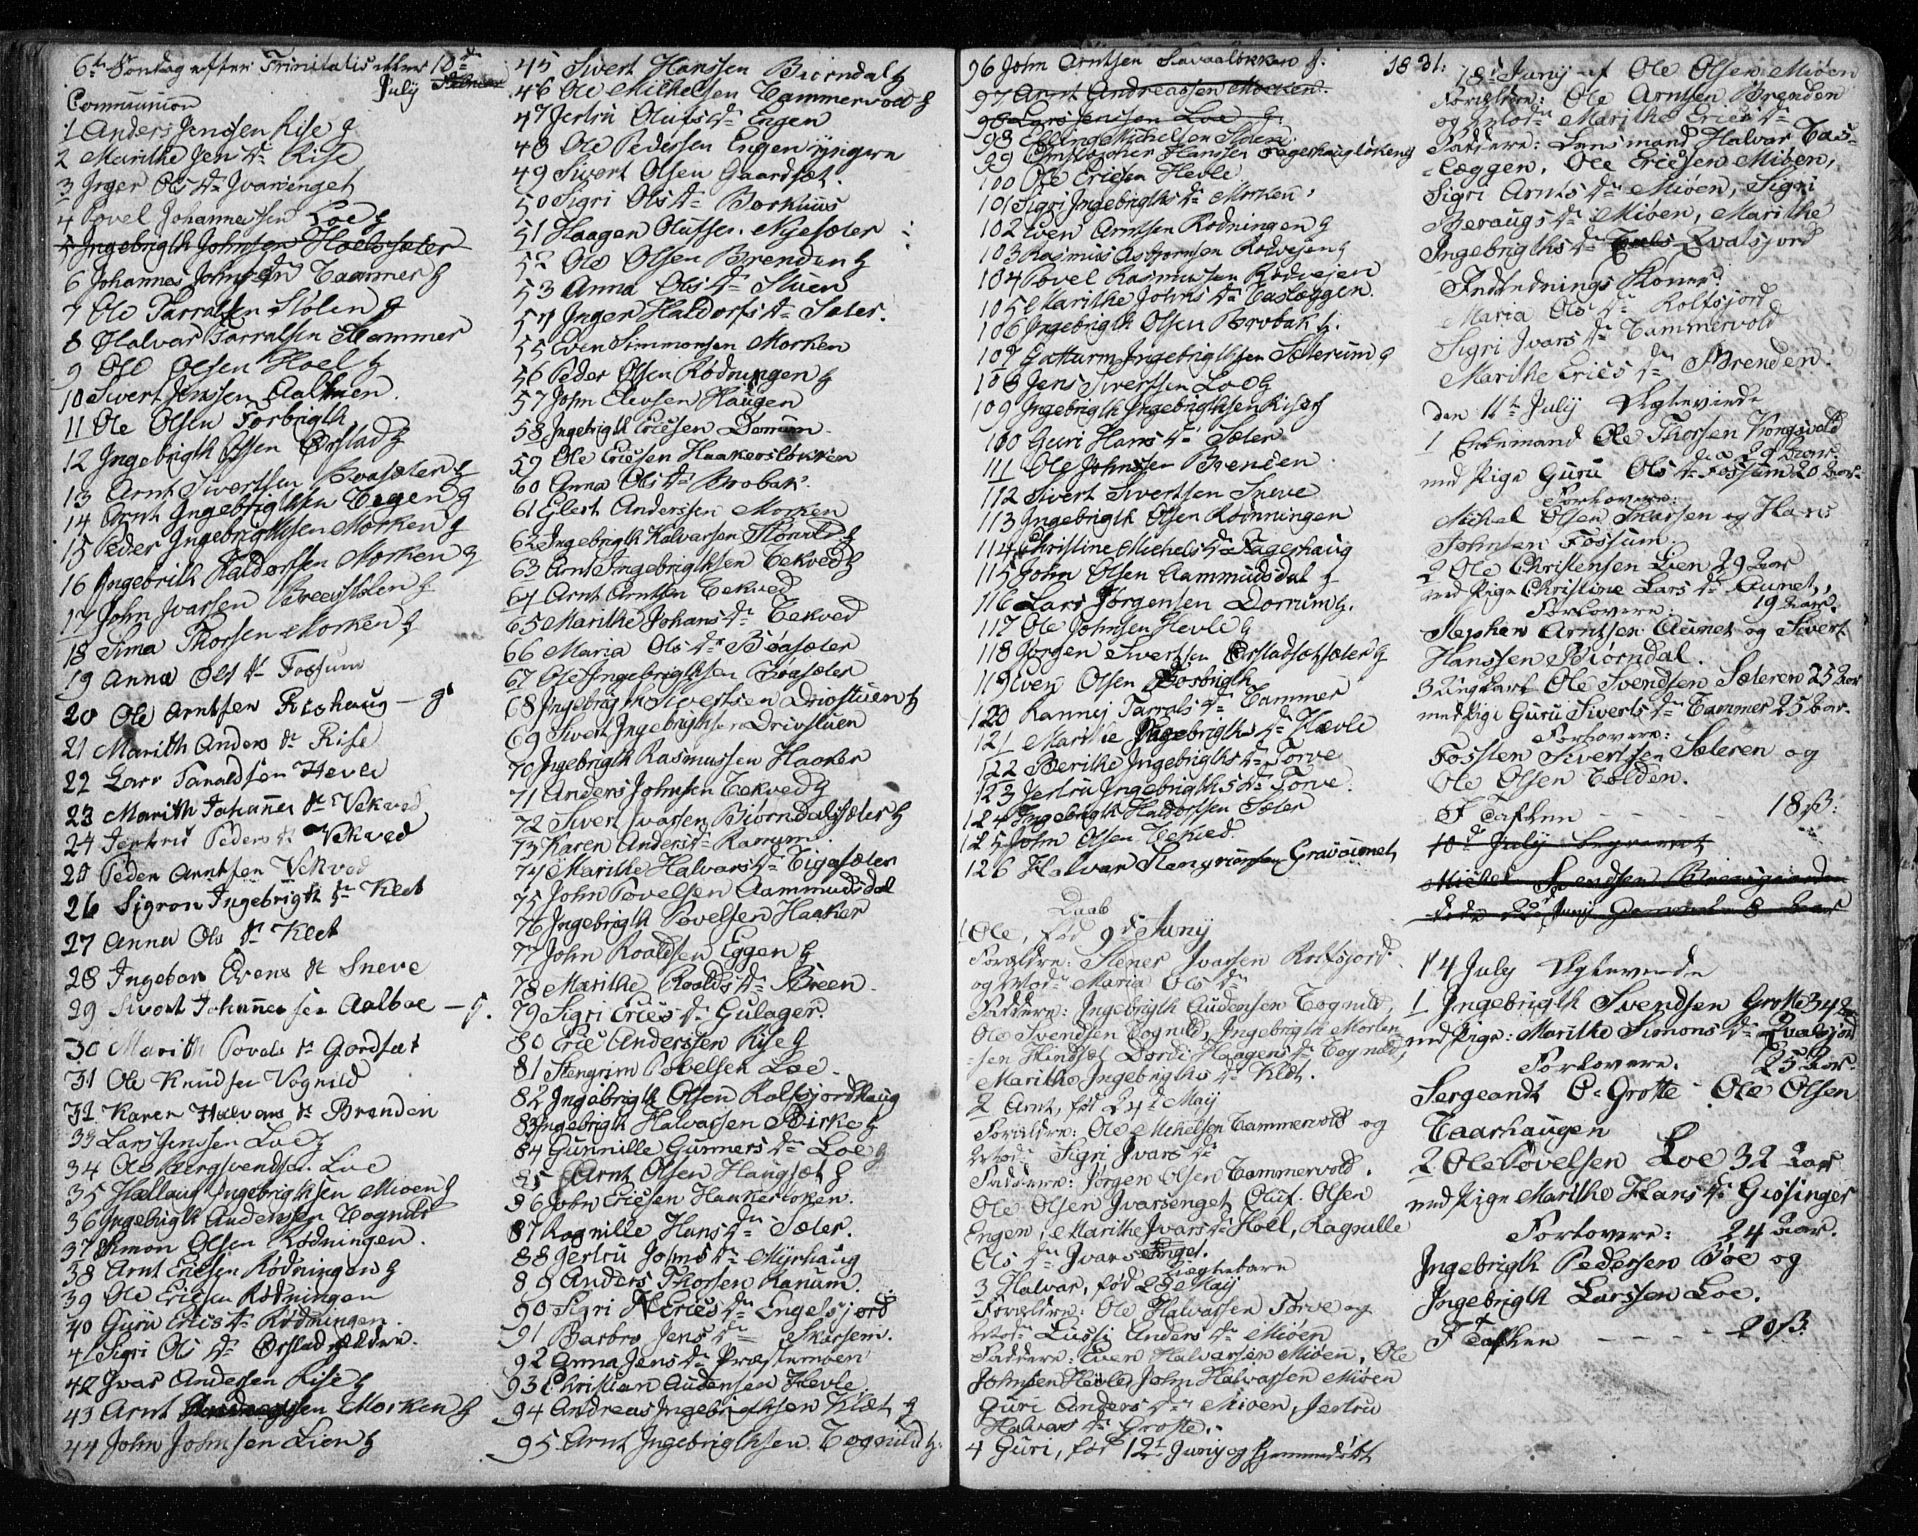 6te Søndag efter Trinitatis eller 10de
July
Communion
1 Anders Jenssen Rise g
2 Marithe Jens Dr Rise
3 Inger Ols Dr Ivarsenget
4 Povel Johannessen Loe g
5 Ingebrigth Johnsen Hoelssæter
6 Johannes Johnsen Tammer g
7 Ole Tarralsen Stølen g
8 Halvar Tarralsen Tammer
9 Ole Olsen Hoel g
10 Sivert Jenssen Aalmen
11 Ole Olsen Forbrigth
12 Ingebrigth Olsen Ørstad g
13 Arnt Sivertsen Bøasæter g
14 Arnt Ingebrigthsen Eggen g
15 Peder Ingebrigthsen Morken g
16 Ingebrith Haldorssen Morken g
17 John Ivarsen Breesstølen g
18 Sima Thorsen Morken g
19 Anna Ols Dr Fossum
20 Ole Arntsen Risehaug - g
21 Marith Anders Dr Rise
22 Lars Taraldsen Hevle
23 Marith Johannes Dr Vekved
24 Jertrud Peders Dr Vekved
25 Peder Arntsen Vekved
26 Sigron Ingebrigth Dr Klet
27 Anna Ols Dr Klet
28 Ingebor Evens Dr Sneve
29 Sivert Johannessen Aalboe - g.
30 Marith Povels Dr Gordsæt
31 Ole Knudsen Vognild
32 Karen Halvors Dr Brenden
33 Lars Jenssen Loe g
34 Ole Bergsvendsen Loe
35 Hallaug Ingebrigthsen Mioen g
36 Ingebrigth Audensen Tognild
37 Simon Olsen Rødningen.
38 Arnt Ericsen Rødningen g
39 Ole Ericsen Rødningen
40 Guru Erics Dr Rødningen.
41 Sigri Ols Dr Ørstad
42 Ivar Andersen Rise g
43 Arnt Andreassen Morken g
44 John Johnsen Lien g
45 Sivert Hanssen Biørndal g
46 Ole Michelsen Tammervold g
47 Jertru Olufs Dr Engen
48 Ole Pedersen Engen yngere
49 Sivert Olsen Gaardsæt.
50 Sigri Ols Dr Borkhuus
51 Haagen Olufsen Nyesæter
52 Ole Olsen Brenden g
53 Anna Ols Dr Stuen
54 Inger Haldors Dr Sæter.
55 Even Simmonsen Morken
56 Peder Olsen Rødningen g
57 John Elevsen Haugen
58 Ingebrigth Ericsen Dorrum
59 Ole Ericsen Haakersløkken
60 Anna Ols Dr Brobak.
61 Elert Anderssen Morken
62 Ingebrigth Halvarsen Stønnes g
63 Arnt Ingebrigthsen Tekved g
64 Arnt Arntsen Tekved
65 Marithe Johans Dr Tekved
66 Maria Ols Dr Bøasæter
67 Ole Ingebrigthsen Bøasæter
68 Ingebrigth Sivertsen Drivstuen g
69 Sivert Ingebrigthsen Drivstuen
70 Ingebrigth Rasmussen Haaker
71 Anders Johnsen Tekved g
72 Sivert Ivarsen Biørndalssæter g
73 Karen Anders Dr Ranum
74 Marithe Halvars Dr Tiggesæter
75 John Povelsen Aammundsdal
76 Ingebrigth Povelsen Haaker
77 John Roaldsen Eggen g
78 Marithe Roalds Dr Breen
79 Sigri Erics Dr Gulager.
80 Eric Anderssen Rise g
81 Stengrim Povelsen Loe
82 Ingebrigth Olsen Rolfsjordhaug
83 Ingebrigth Halvarsen Birke g
84 Gunnille Gunners Dr Loe g
85 Arnt Olsen Haugsæt g
86 John Ericsen Haakerløken.
87 Ragnille Hans Dr Sæter.
88 Jertru Johns Dr Myrhaug
89 Anders Thorsen Ranum.
90 Sigri Erics Dr Engelsjord
91 Barbro Jens Dr Skarsem.
92 Anna Jens Dr Præstemoen
93 Christian Audensen Hevle
94 Andreas Ingebrigthsen Klæt g
95 Arnt Ingebrigthsen Tognild g.
96 John Arntsen Savaaløkken g.
97 Arnt Andreassen Morken.
98 Lars Jenssen Loe g.
98 Elling Michelsen Stølen
99 Christopher Hanssen Fagerhaugløkken g
100 Ole Ericsen Hevle
101 Sigri Ingebrigths Dr Morken
102 Even Arntsen Rødningen g
103 Rasmus Asbjørnsen Rødvejen g
104 Povel Rasmussen Rødvejen
105 Marithe Johns Dr Casleggen.
106 Ingebrigth Olsen Brobak g.
107 Guttorm Ingebrigthsen Sæterum g
108 Jens Sivertsen Loe g
109 Ingebrigth Ingebrigthsen Rise g
110 Guri Hans Dr Sæter
111 Ole Johnsen Brenden
112 Sivert Sivertsen Sneve
113 Ingebrigth Olsen Rødnningen
114 Christine Michels Dr Fagerhaug
115 John Olsen Aammudsdal g
116 Lars Jørgensen Dorrum g.
117 Ole Johnsen Hevle g
118 Jørgen Sivertsen Ørstadsætsæter g
119 Even Olsen Forbrigth
120 Rannej Tarrals Dr Tammer
121 Marithe Ingebrigths Dr Hævle
122 Berithe Ingebrigths Dr Torve
123 Jertru Ingebrigths Dr Torve.
124 Ingebrigth Haldorssen Sæter
125 John Olsen Tekved
126 Halvar Stengrimsen Gravaunet
Daab
1 Ole, fød 9d Juny
Forældre: Stener Ivarsen Rolfsjord
og Mod. Maria Ols Dr
Faddere: Ingebrigth Audensen Tognild,
Ole Svendsen Tognild, Ingebrigth Morten-
-sen Hindsæt, Dordi Haagens Dr Tognild,
Marithe Ingebrigths Dr Klæt.
2 Arnt, fød 24d Maij
Forældre: Ole Michelsen Tammervold og
Mod: Sigri Ivars Dr
Faddere: Jørgen Olsen Tammervold.
Ole Olsen Ivarsenget, Oluf Olsen
Engen, Marithe Ivars Dr Hoel, Ragnille
Ols Dr Ivarsenget.
Uægtebarn
3 Halvar, fød 28 Maij
Forældre: Ole Halvarsen Torve og
Mod: Lussi Anders Dr Mioen
Faddere: Even Halvarsen Mioen, Ole
Johnsen Hevle, John Halvarsen Mioen
Guri Anders Dr Mioen, Jertru
Halvars Dr Grotte.
4 Guri, fød 12t Juny og hjemmedøbt
1831.
18d Juny af Ole Olsen Mioen
Forældre: Ole Arntsen Brenden
og Mod. Marithe Erics Dr
Faddere: Lansmand Halvar Cas-
-læggen, Ole Ericsen Mioen,
Sigri Arnts Dr Mioen, Sigri
Beraugs Dr Mioen, Marithe
Ingebrigths Dr Qvalsjord
Indledningskoner
Maria Ols Dr Rolfsjord
Sigri Ivars Dr Tammervold
Marithe Erics Dr Brenden.
den 11t July Ægteviede
1 Enkemand Ole Thorsen Vongsvold
29 Aar
med Pige Guru Ols Dr Fossum 20 Aar.
Forlovere:
Michel Olsen Skarsen og Hans
Johnsen Fossum.
2 Ole Christensen Lien 29 Aar
med Pige Christine Lars Dr Aunet,
19 Aar.
Forlovere:
Stephen Arntsen Aunet og Sivert
Hanssen Biørndal.
3 Ungkarl Ole Svendsen Sæteren 25 Aar
med Pige Guru Siverts Dr Tammer 25 Aar.
Forlovere:
Fosten Sivertsen Sæteren og
Ole Olsen Tolden.
I Tavlen - - - - 18 ß:
10d July begravet
Michel Svendsen
døde 22d Juny Gammel 8 Aar
14 July Ægteviede
1 Ingebrigth Svendsen Grotte 34 Aar
med Pige: Marithe Simons Dr Qvalsjord
25 Aar.
Forlovere.
Sergeandt O. Grotte Ole Olsen
Taarhaugen
2 Ole Povelsen Loe 32 Aar
med Pige Marithe Hans Dr Gisinger
24 Aar.
Forlovere:
Ingebrigth Pedersen Bøe og
Ingebrigth Larssen Loe.
I Tavlen - - - - 20 ß.